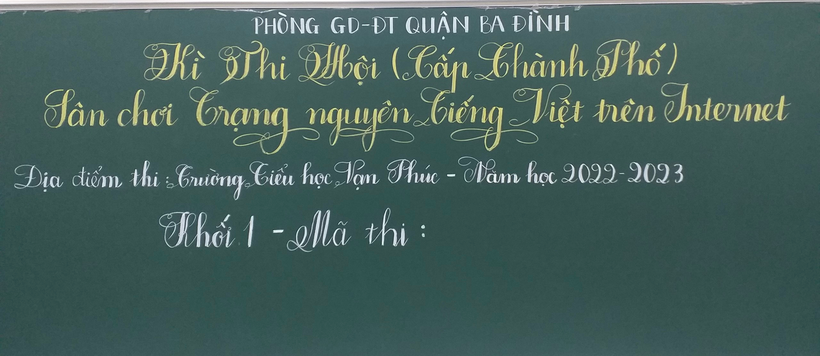 PHÒNG GD-ĐT QUẬN BA ĐÌNH
Kì Thi Hội (Cấp Thành Phố)
Sân chơi Trạng nguyên Tiếng Việt trên Internet
Địa điểm thi : Trường Tiểu học Vạn Phúc - Năm học 2022-2023
Khối 1 - Mã thi :